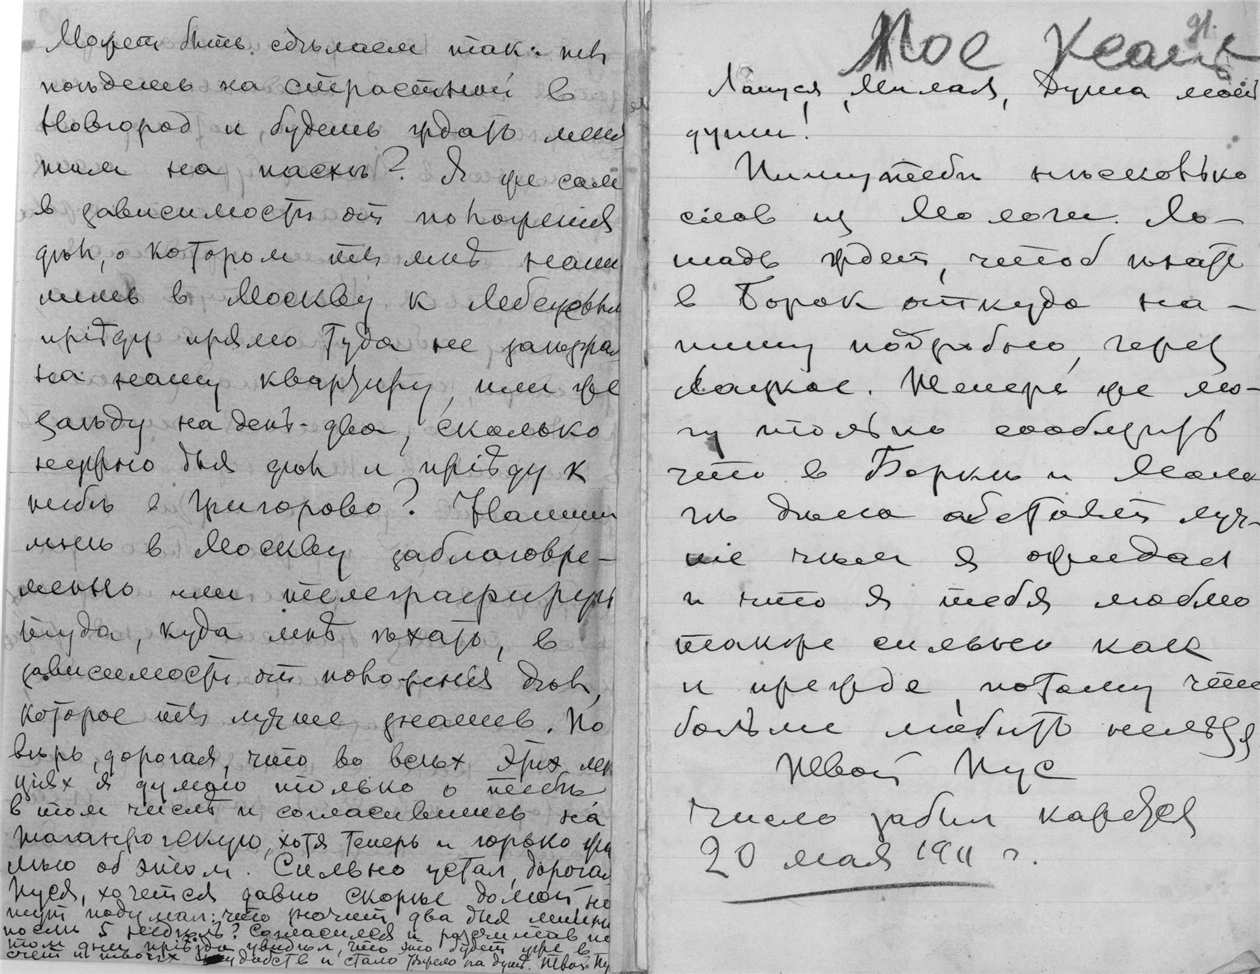 Можетъ быть сдѣлаем так: ты
поѣдешь на страстной в
Новгород и будешь ждать меня
там на пасхѣ? Я же сам
в зависимости от положенія
дѣл, о котором ты мнѣ напи
шешь в Москву к Лебедевым
пріѣду прямо туда не заѣзжая
на нашу квартиру, или же
заѣду на день-два, сколько
нужно для дѣл и пріѣду к
тебѣ в Григорово? Напиши
мнѣ в Москву заблаговре-
менно или телеграфируй
туда, куда мнѣ ѣхать, в
зависимости от положенія дѣл,
которое ты лучше знаешь. По
вѣрь, дорогая, что во всѣх этих лек
ціях я думаю только о тебѣ
в том числѣ и согласившись на
таганрогскую, хотя теперь и горько
об этом. Сильно устал, дорогая
Пуся, хочется давно скорѣе домой но
тут подумал: что значит два дня
послѣ 5 недѣль? Согласился и
пріѣзда увидѣл, что это будет уже в
счет и твоих и стало на душѣ. Твой Пу
Мое
91.
Лапуся, Милая, Душа моей
души!
Пишу тебѣ нѣсколько
слов из Мологи. Ло-
шадь ждет, чтоб ѣхать
в Борок откуда на-
пишу подробно, через
Лацкое. Теперь же мо-
гу только сообщить
что в Боркѣ и Моло
гѣ дѣла обстоят луч-
ше чѣм я ожидал
и что я тебя люблю
также сильно как
и прежде, потому что
больше любить нельзя
Твой Пус
Число забыл кажется
20 мая 1911 г.